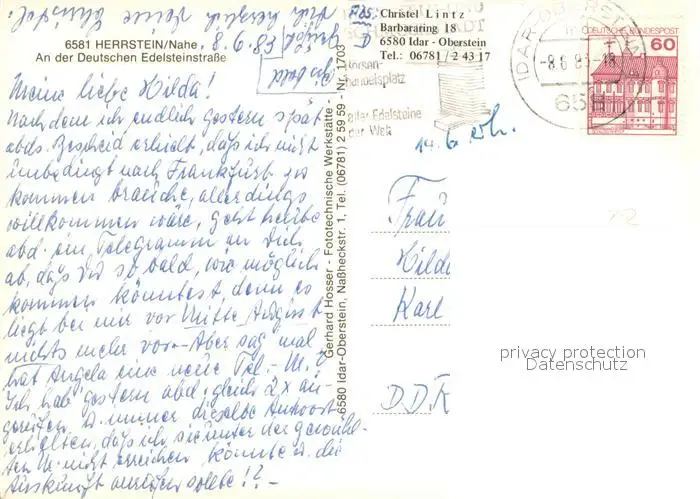 6581 HERRSTEIN/Nahe,
An der Deutschen Edelsteinstraße
8.6.83
Meine liebe Hilda!
Nach dem ich endlich gestern spät
abds. Bescheid erhielt, daß ich nicht
unbedingt nach Frankfurt zu
kommen brauche, allerdings
willkommen wäre, geht heute
abd. ein Telegramm an Dich
ab, daß Du so bald, wie möglich
kommen könntest, denn es
liegt bei mir vor Mitte August
nichts mehr vor. - Aber sag mal
hat Angela eine neue Tel.-Nr.?
Ich hab' gestern abd. gleich 2x an-
gerufen u. immer dieselbe Antwort
erhalten, daß ich sie unter der gewähl-
ten Nr. nicht erreichen könnte u. die
Auskunft anrufen sollte!? -
Gerhard Hosser - Fototechnische Werkstätte -
6580 Idar-Oberstein, Naßheckstr. 1, Tel. (06781) 2 59 59 - Nr. 1703
Christel Lintz
Barbararing 18
D 6580 Idar - Oberstein
Tel.: 06781 / 2 43 17
aller Edelsteine
der Welt
IDAR-OBERSTEIN
-8.6.83-18
658
DEUTSCHE BUNDESPOST
60
Frau
Karl
privacy protection
Datenschutz